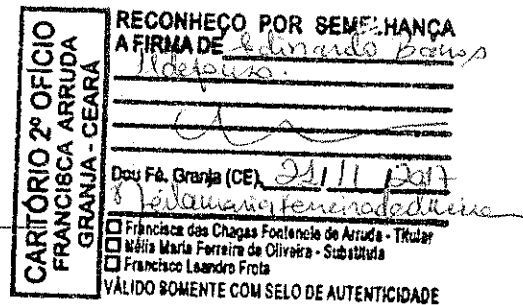 CARTÓRIO 2º OFÍCIO
FRANCISCA ARRUDA
GRANJA - CEARÁ
RECONHEÇO POR SEMELHANÇA
A FIRMA DE Edinardo Barros
Ildefonso.
Dou Fé. Granja (CE), 21/11/2017
☐ Francisca das Chagas Fontenele de Arruda - Titular
☐ Nélia Maria Ferreira de Oliveira - Substituta
☐ Francisco Leandro Frota
VÁLIDO SOMENTE COM SELO DE AUTENTICIDADE